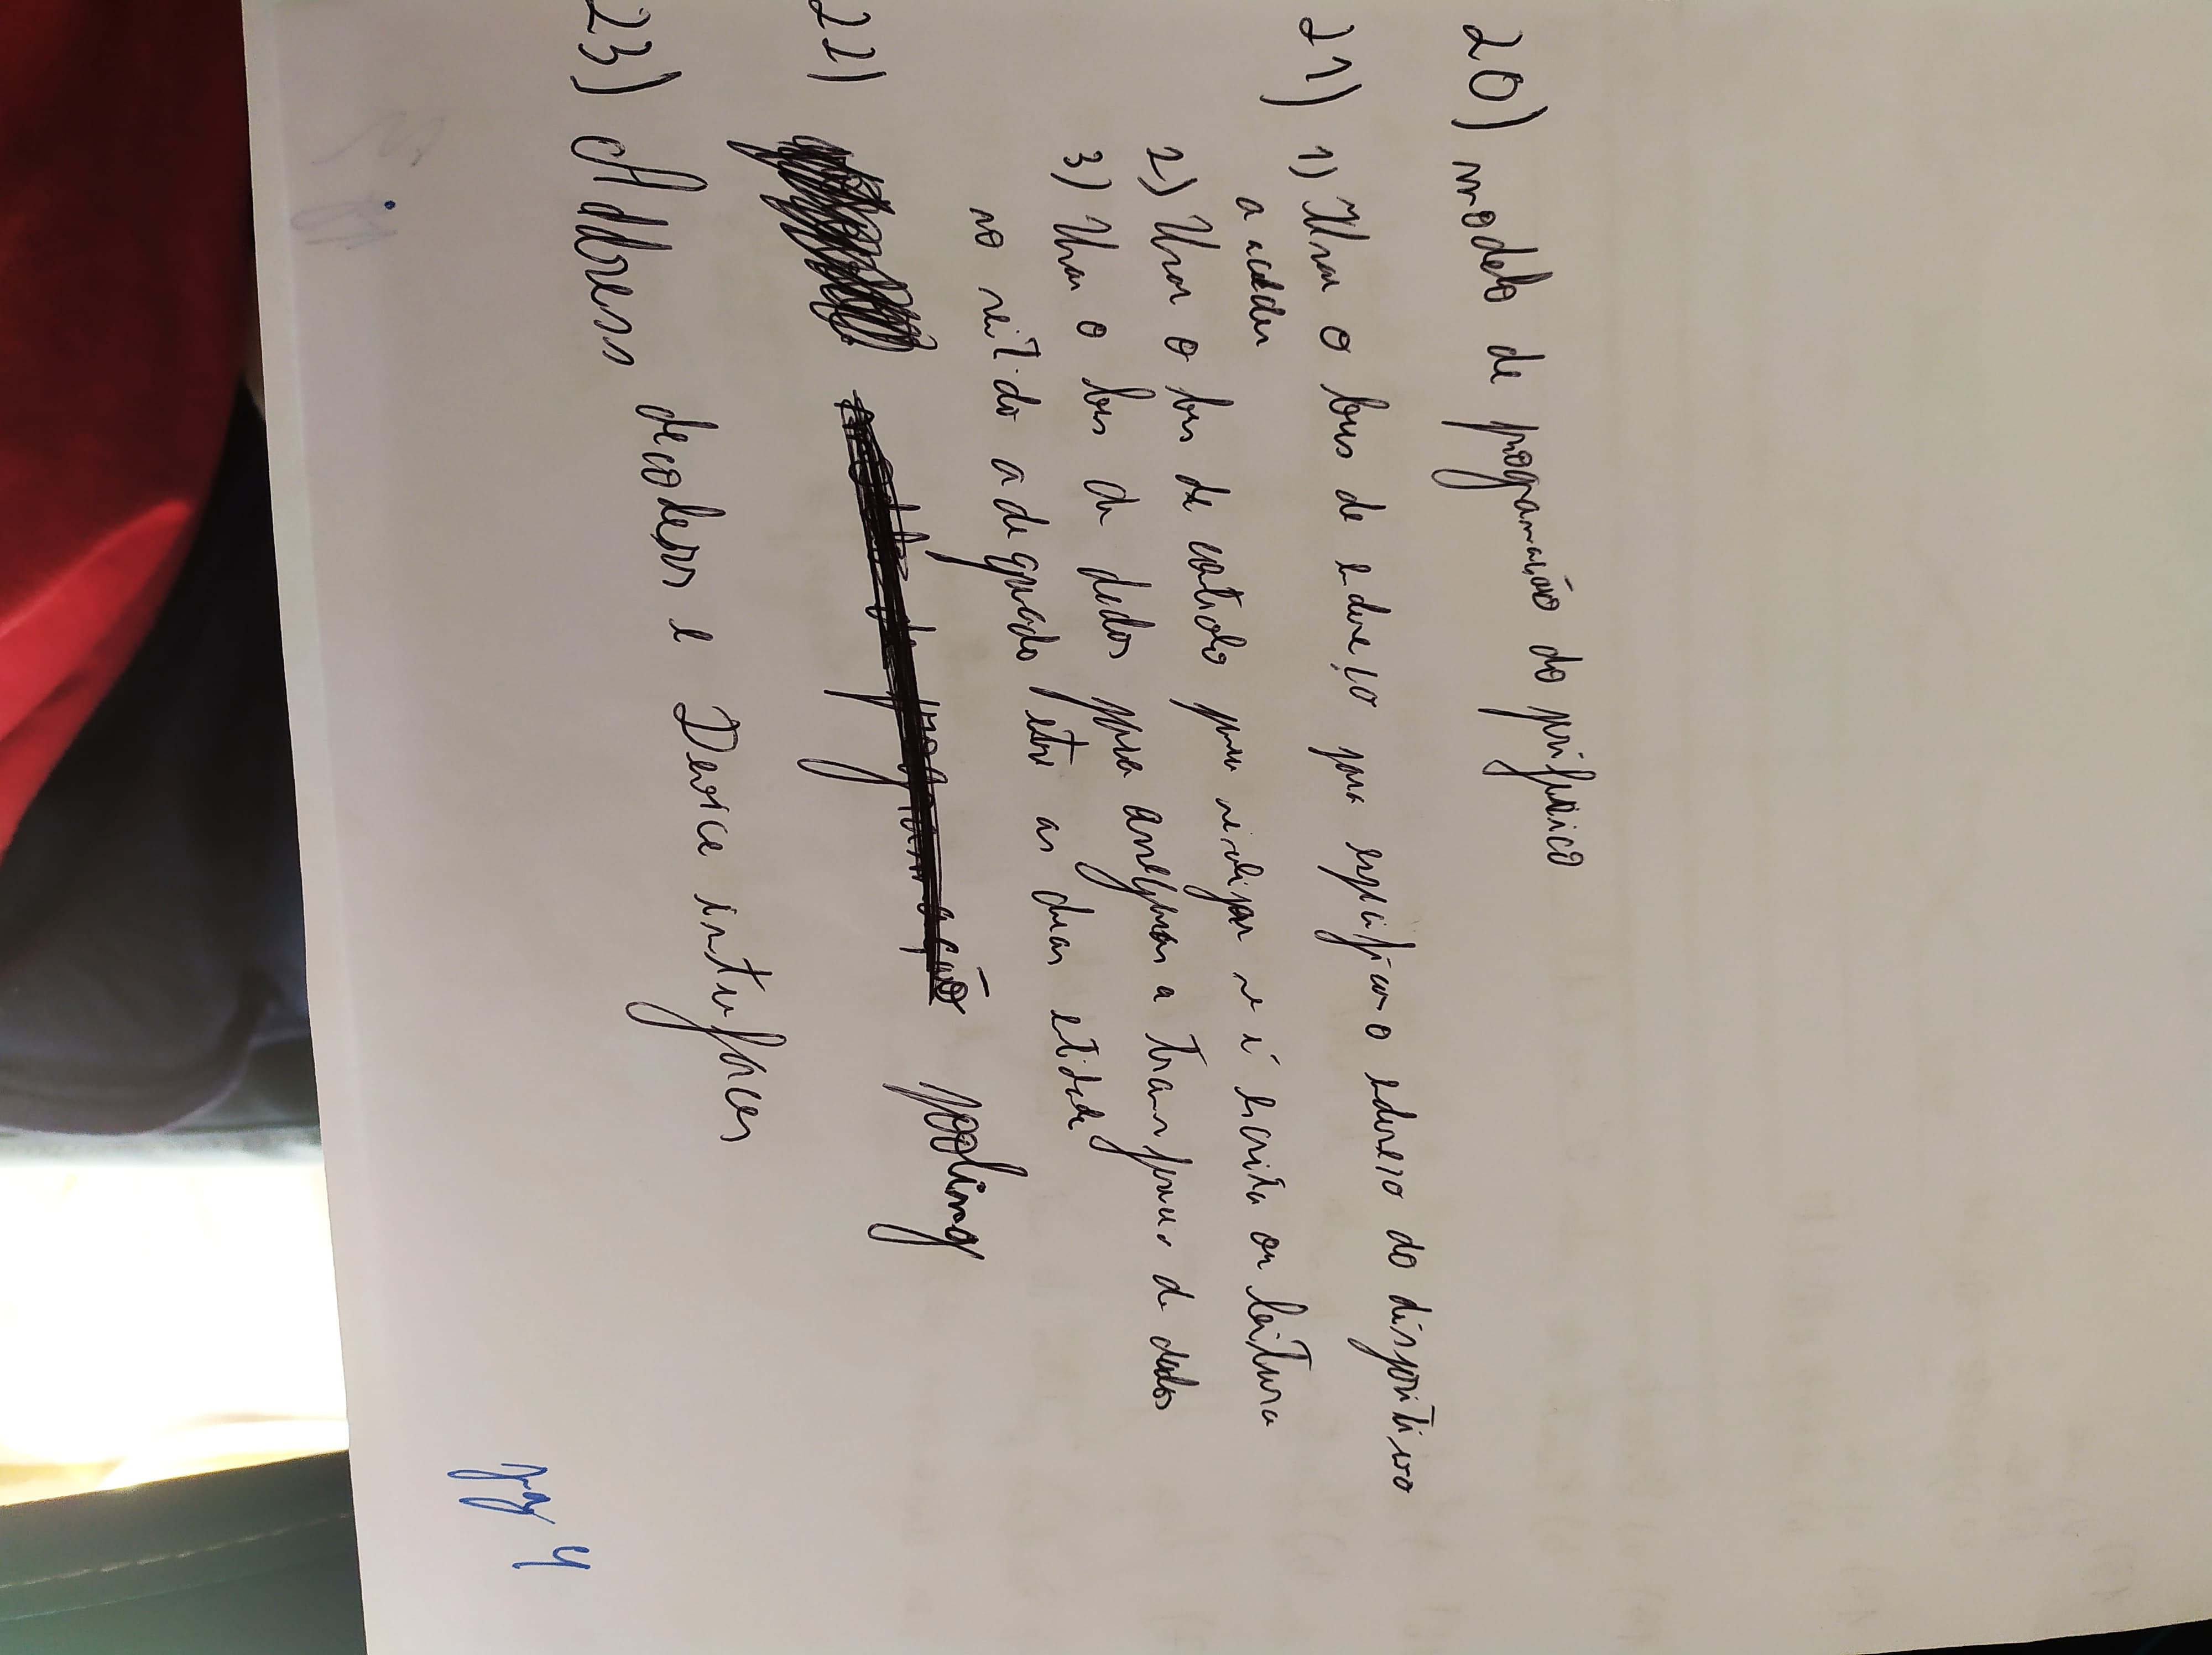 20) modelo de programação do priferico
21) 1) Usar o bus de endereço para especificar o endereço do dispositivo
a aceder
2) Usar o bus de controlo para se é escrita ou leitura
3) Usar o bus de dados para assegurar a transferencia de dados
no sentido adequado entre as duas entidade
22) modelo de programação pooling
23) Address decoders e Device interfaces
pag 4